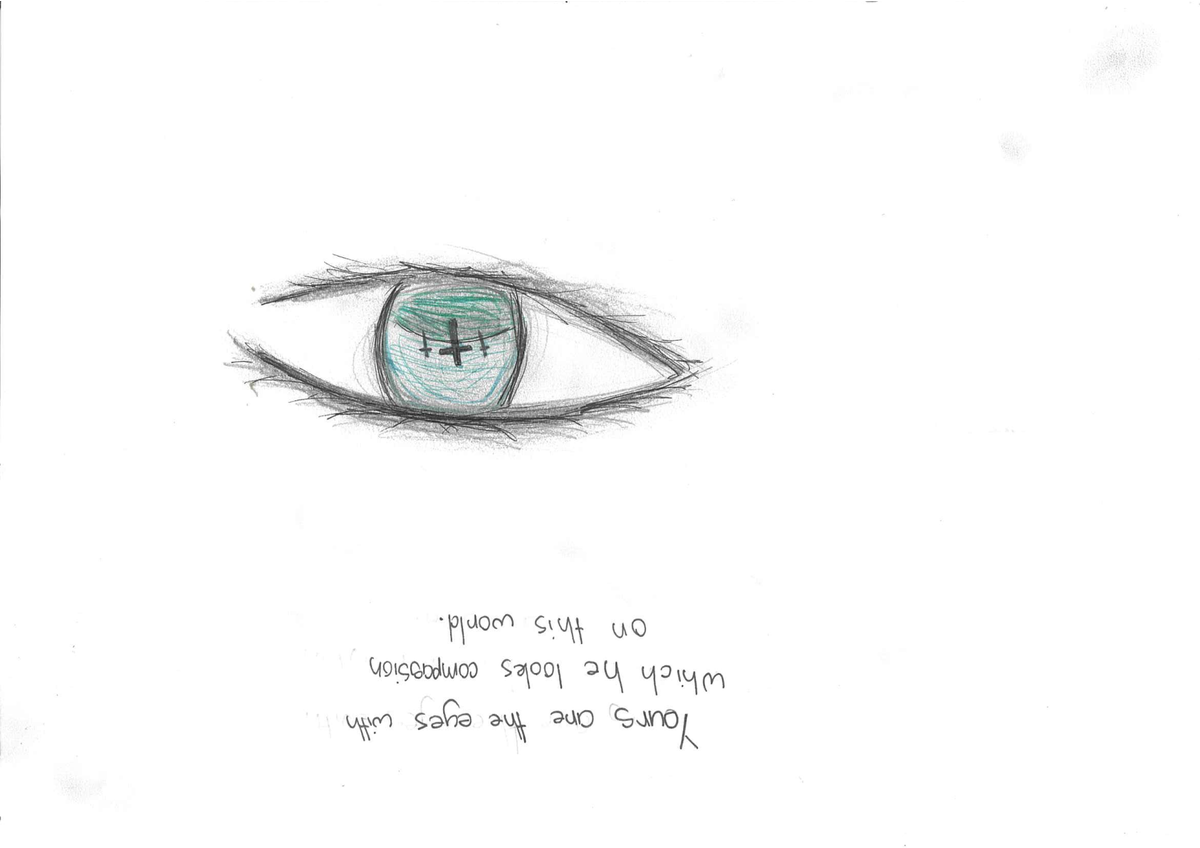 Yours are the eyes with
which he looks compassion
on this world.